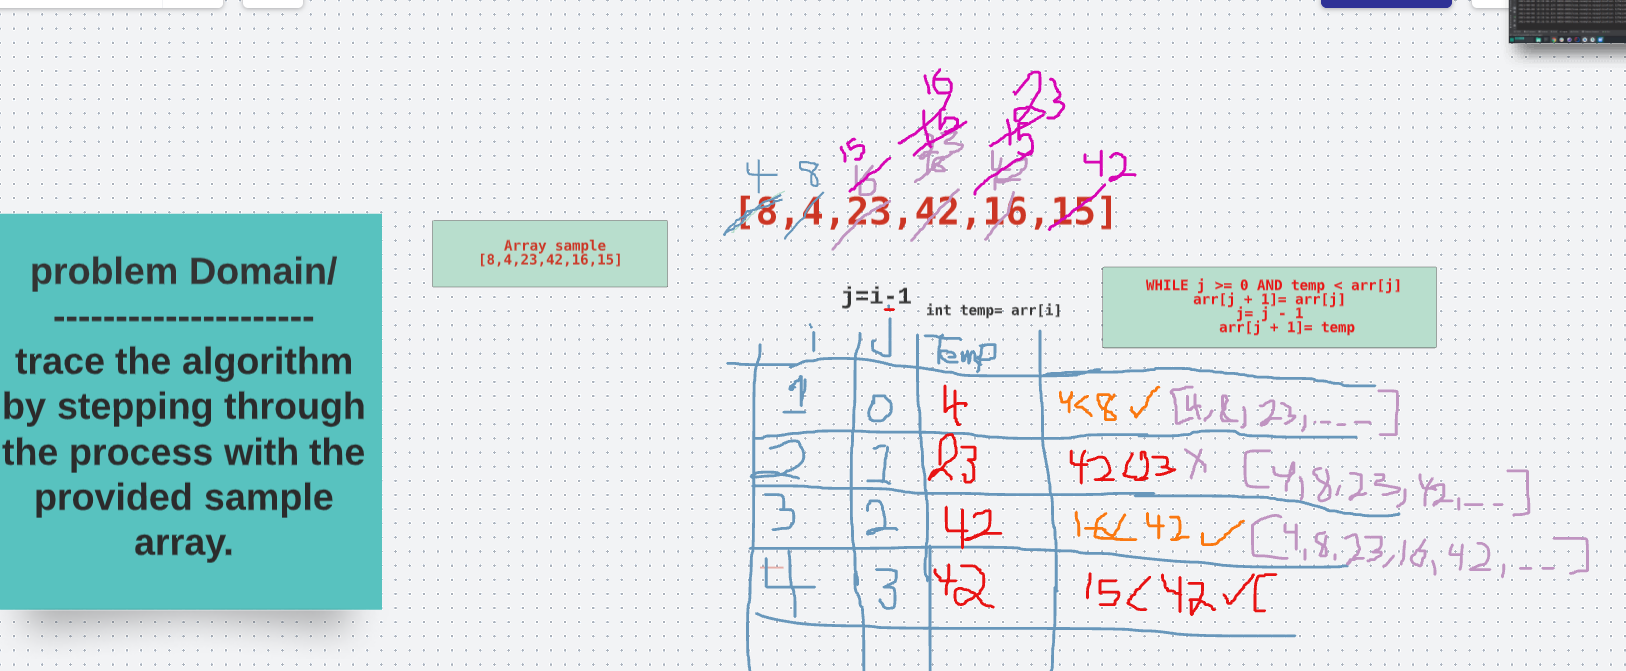 problem Domain/
---------------------
trace the algorithm
by stepping through
the process with the
provided sample
array.
Array sample
[8,4,23,42,16,15]
16 23
15 15 15
4 8 16 42 42
[8,4,23,42,16,15]
j=i-1
int temp= arr[i]
WHILE j >= 0 AND temp < arr[j]
arr[j + 1]= arr[j]
j= j - 1
arr[j + 1]= temp
i J Temp
1 0 4 4<8 ✓ [4,8,23,---]
2 1 23 42<23 X [4,8,23,42,--]
3 2 42 16<42 ✓ [4,8,23,16,42,--]
4 3 42 15<42 ✓ [